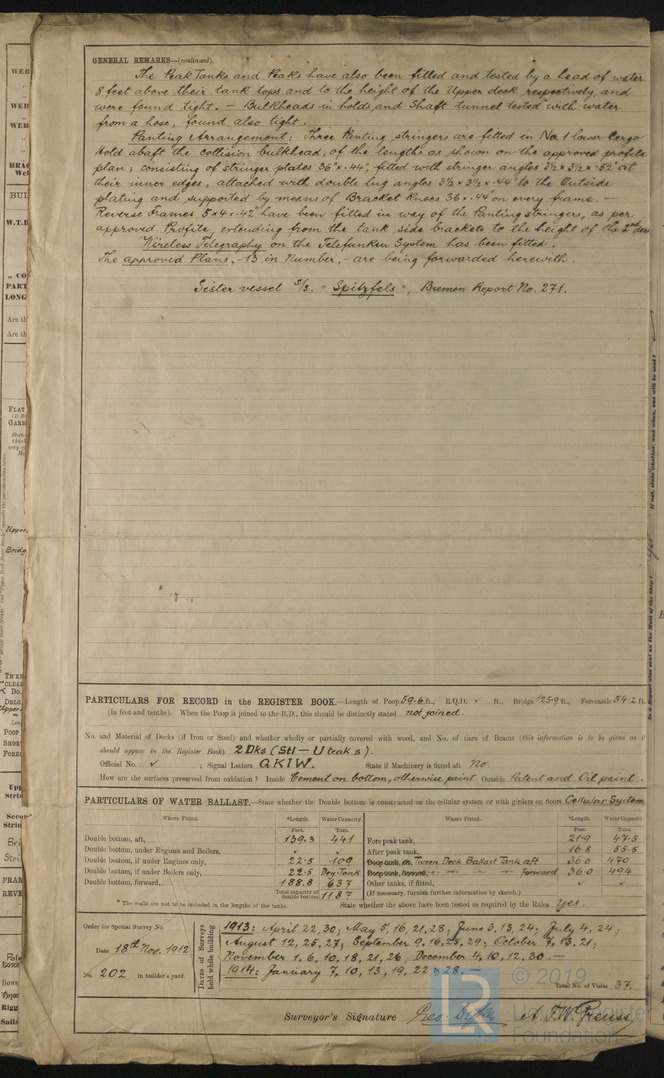 GENERAL REMARKS—(continued).
The Peak Tanks and Peaks have also been fitted and tested by a head of water
8 feet above their tank tops and to the height of the Upper deck respectively, and
were found tight. — Bulkheads in holds, and Shaft tunnel tested with water
from a hose, found also tight.
Panting Arrangement: Three Panting stringers are fitted in No. 1 lower Cargo
Hold abaft the collision bulkhead, of the lengths as shown on the approved profile
plan; consisting of stringer plates 36" x .44", fitted with stringer angles 3½ x 3½ x .52" at
their inner edges, attached with double lug angles 3½ x 3½ x .44" to the Outside
plating and supported by means of Bracket Knees 36 x .44" on every frame. —
Reverse Frames 5 x 4 x .42" have been fitted in way of the Panting stringers, as per
approved Profile, extending from the tank side brackets to the height of the 2nd deck
Wireless Telegraphy on the Telefunken System has been fitted.
The approved Plans, - 13 in Number, - are being forwarded herewith.
Sister vessel S/S. "Spitzfels", Bremen Report No. 271.
PARTICULARS FOR RECORD in the REGISTER BOOK.—Length of Poop 59.6 ft., R.Q.D. ✓ ft., Bridge 125.9 ft., Forecastle 54.2 ft.
(in feet and tenths). When the Poop is joined to the B.D., this should be distinctly stated not joined.
No. and Material of Decks (if Iron or Steel) and whether wholly or partially covered with wood, and No. of tiers of Beams (this information is to be given as it
should appear in the Register Book). 2 Dks (Stl — U teak s).
Official No. ✓ ; Signal Letters QKIW. State if Machinery is fitted aft No.
How are the surfaces preserved from oxidation? Inside Cement on bottom, otherwise paint Outside Patent and Oil paint.
PARTICULARS OF WATER BALLAST.—State whether the Double bottom is constructed on the cellular system or with girders on floors Cellular System
Where Fitted. *Length. Water Capacity. Where Fitted. *Length. Water Capacity.
Feet. Tons. Feet. Tons.
Double bottom, aft, 139.3 441 Fore peak tank, 21.9 47.5
Double bottom, under Engines and Boilers, ✓ ✓ After peak tank, 16.8 55.5
Double bottom, if under Engines only, 22.5 109 Deep tank, aft, Tween Deck Ballast Tank aft 36.0 470
Double bottom, if under Boilers only, 22.5 Dry-Tank Deep tank, forward, forward 36.0 494
Double bottom, forward, 188.8 637 Other tanks, if fitted, ✓ ✓
Total capacity of double bottom 1187 (If necessary, furnish further information by sketch.)
* The wells are not to be included in the lengths of the tanks. State whether the above have been tested as required by the Rules. Yes.
Order for Special Survey No.
Date 18th Nov. 1912
No. 202 in builder's yard.
Dates of Surveys held while building
1913: April 22, 30; May 5, 16, 21, 28; Juns 3, 13, 24; July 4, 24;
August 12, 25, 27; September 9, 16, 25, 29; October 7, 13, 21;
November 1, 6, 10, 18, 21, 26; December 4, 10, 12, 30. —
1914: January 7, 10, 13, 19, 22 & 28. —
Total No. of Visits 37.
Surveyor's Signature Geo. Dykes A.F.W. Preuss
© 2019
Lloyd's Register
Foundation